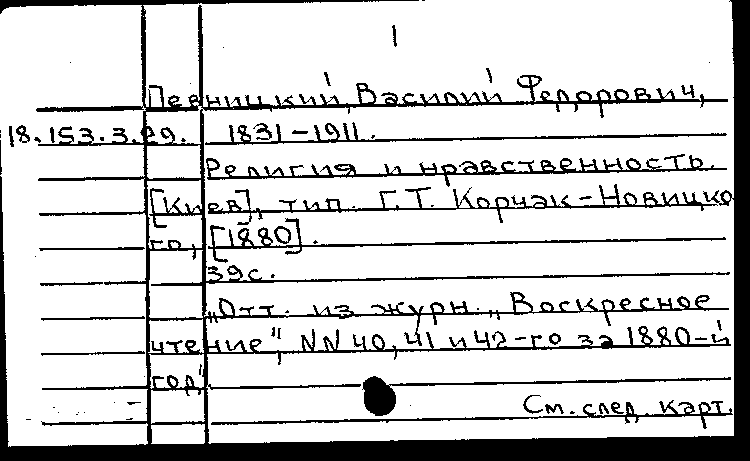 1
Певницкий, Василий Федорович,
18.153.3.29. 1831-1911.
Религия и нравственность.
[Киев], тип. Г.Т. Корчак-Новицко
го, [1880].
39с.
„Отт. из журн. „Воскресное
чтение", NN 40, 41 и 42-го за 1880-й
год"
См. след. карт.